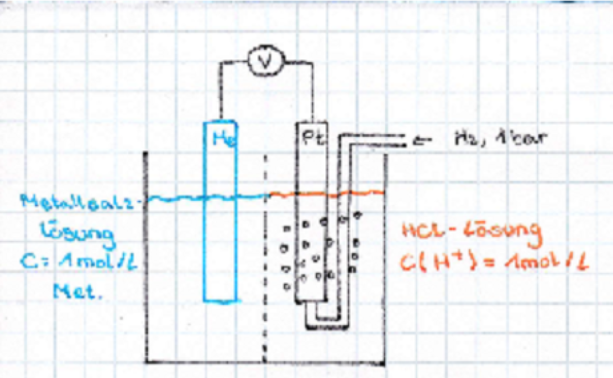 V
Me
Pt
← H2, 1 bar
Metallsalz-
Lösung
C = 1mol/L
Met.
HCL-Lösung
C(H+) = 1mol/L